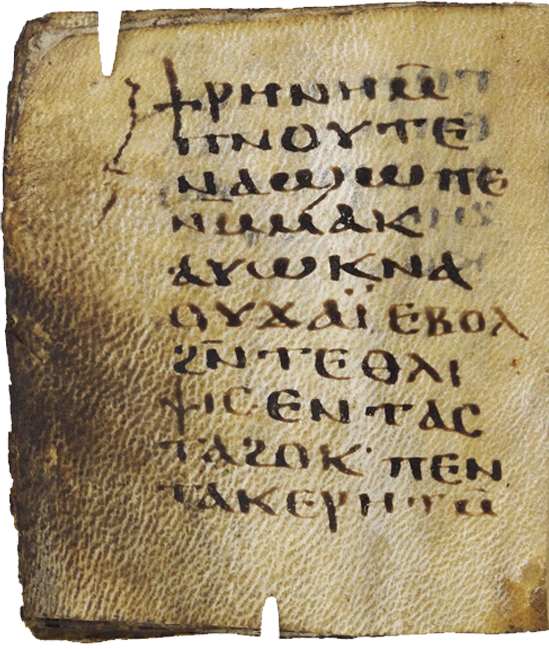 ϯⲣⲏⲛⲏⲙ̄
ⲡⲛⲟⲩⲧⲉ
ⲛⲁϣⲱⲡⲉ
ⲛⲙ̄ⲙⲁⲕ
ⲁⲩⲱⲕⲛⲁ
ⲟⲩϫⲁⲓ̈ ⲉⲃⲟⲗ
ϩⲛ̄ⲧⲉⲑⲗⲓ
ⲯⲓⲥ ⲉⲛⲧⲁⲥ
ⲧⲁϩⲟⲕ· ⲡⲉⲛ
ⲧⲁⲕⲉⲣⲏⲧⲙ̄